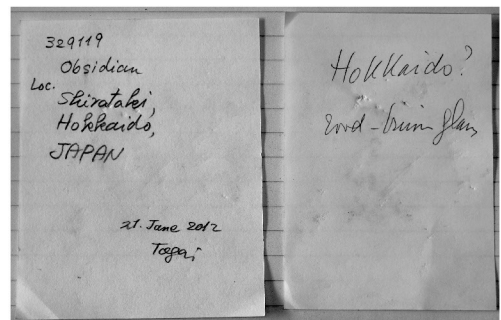 329119
Obsidian
Loc.
Shirataki,
Hokkaido,
JAPAN
21. June 2012
Hokkaido?